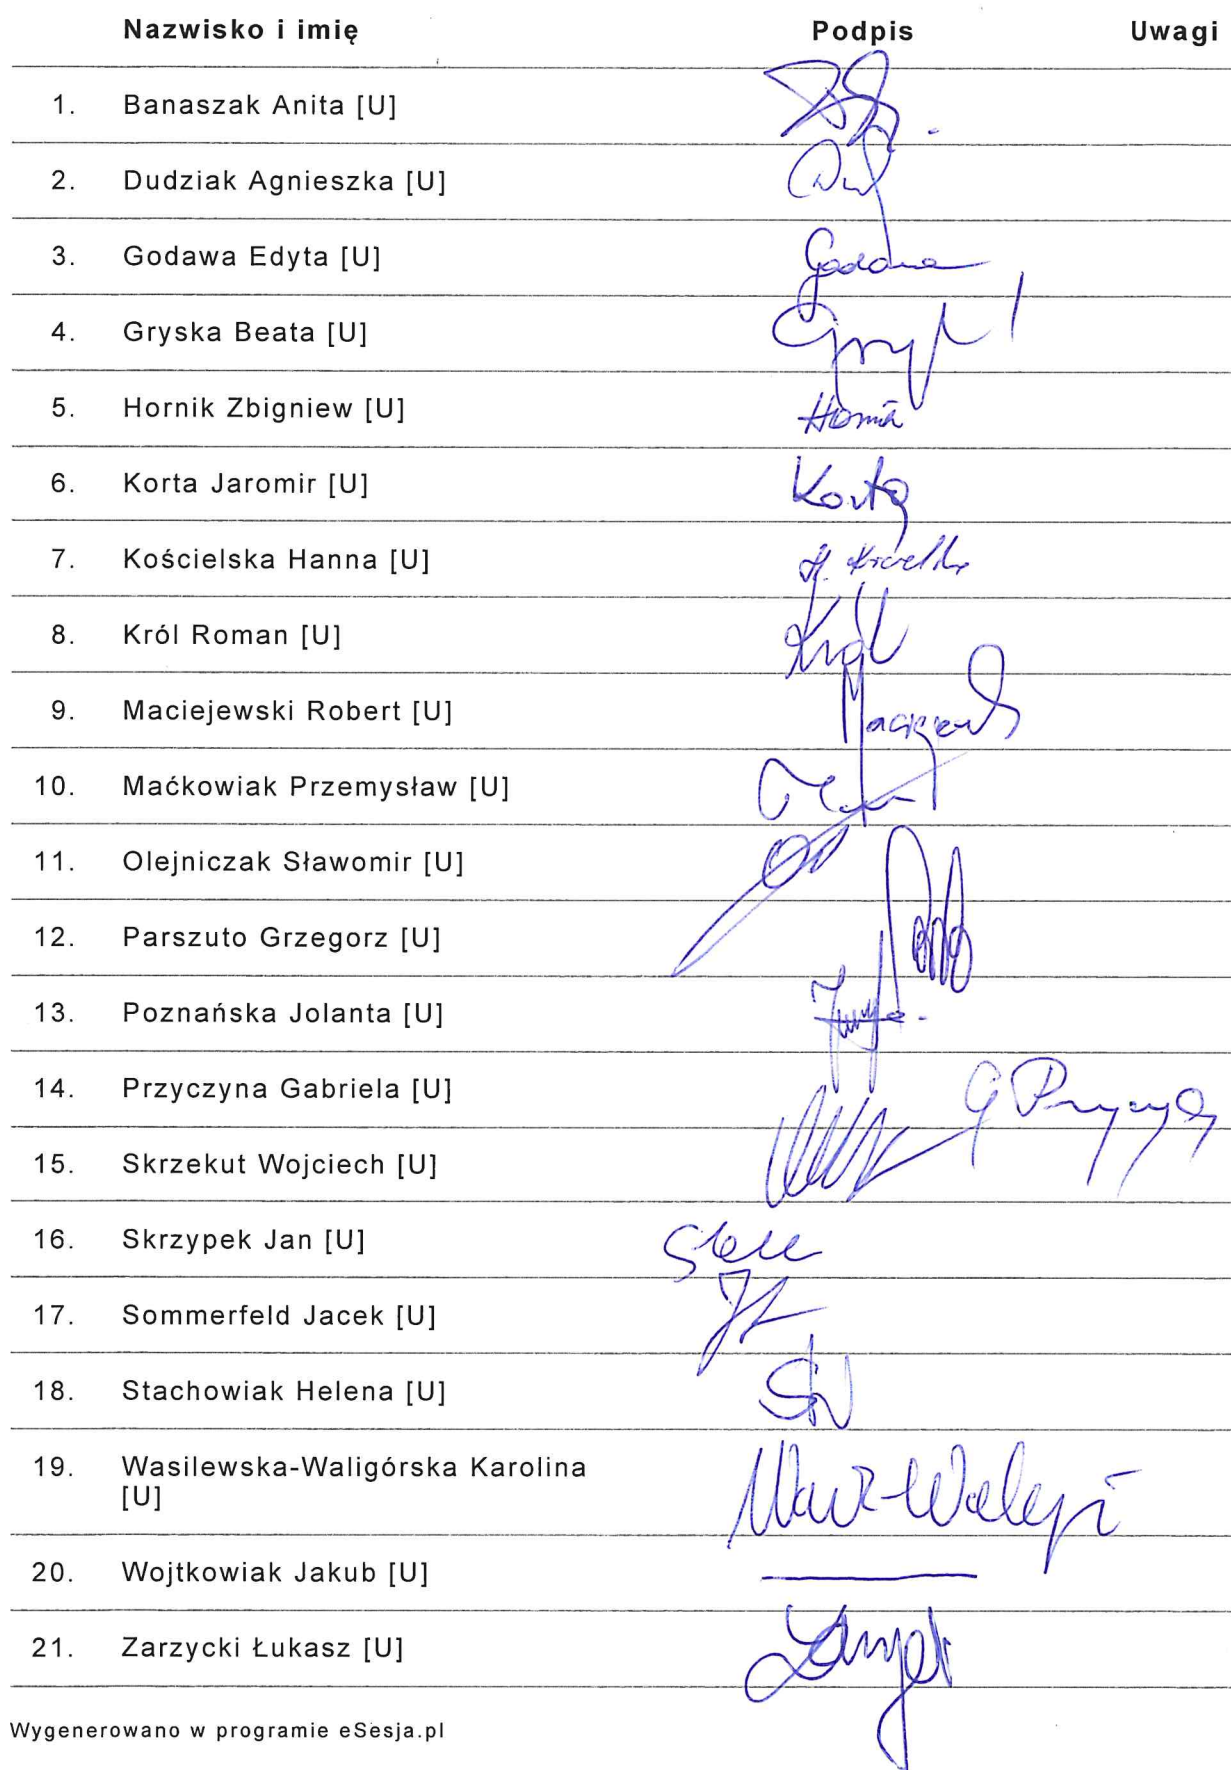 Nazwisko i imię Podpis Uwagi
1. Banaszak Anita [U]
2. Dudziak Agnieszka [U]
3. Godawa Edyta [U] Godawa
4. Gryska Beata [U]
5. Hornik Zbigniew [U] Hornik
6. Korta Jaromir [U] Korta
7. Kościelska Hanna [U]
8. Król Roman [U] Król
9. Maciejewski Robert [U]
10. Maćkowiak Przemysław [U]
11. Olejniczak Sławomir [U]
12. Parszuto Grzegorz [U]
13. Poznańska Jolanta [U]
14. Przyczyna Gabriela [U]
15. Skrzekut Wojciech [U]
16. Skrzypek Jan [U]
17. Sommerfeld Jacek [U]
18. Stachowiak Helena [U]
19. Wasilewska-Waligórska Karolina
[U]
20. Wojtkowiak Jakub [U]
21. Zarzycki Łukasz [U]
Wygenerowano w programie eSesja.pl